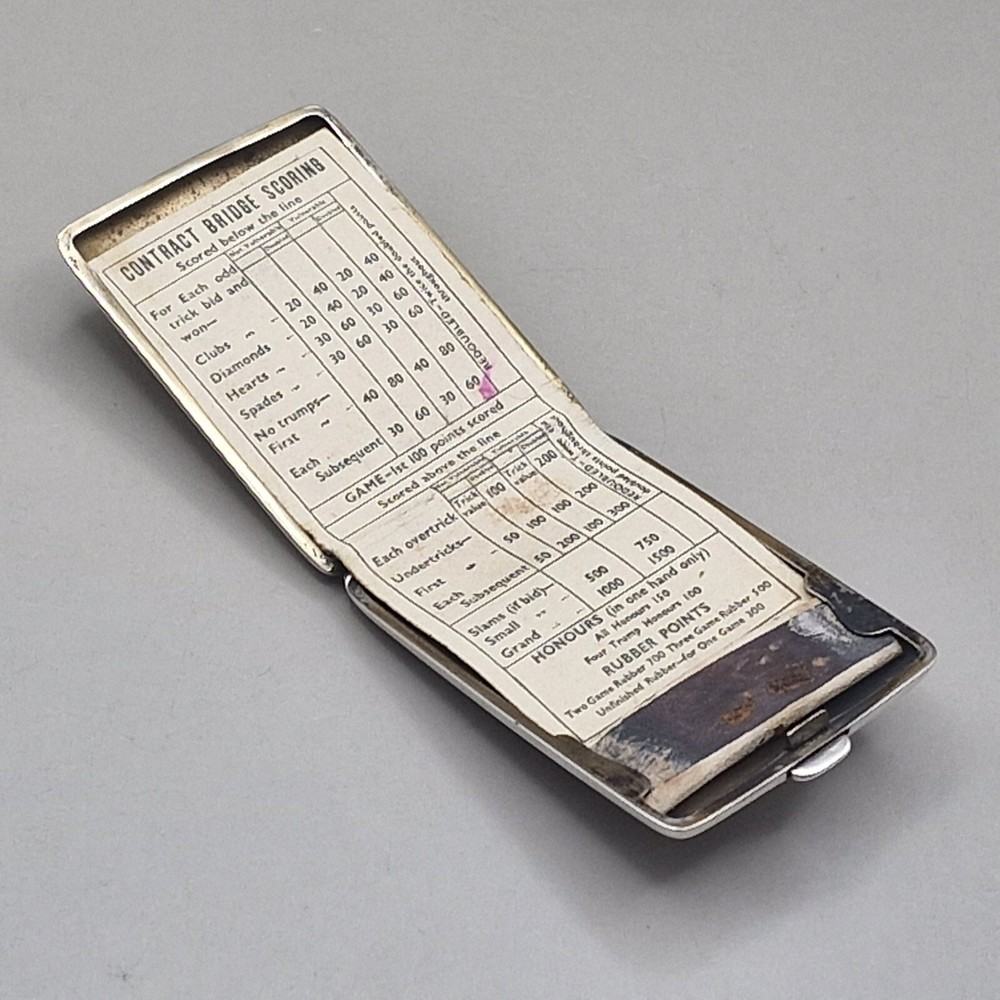 CONTRACT BRIDGE SCORING
Scored below the line
Not Vulnerable Vulnerable
Doubled Doubled
For Each odd
trick bid and
won—
Clubs 20 40 20 40
Diamonds 20 40 20 40
Hearts 30 60 30 60
Spades 30 60 30 60
No trumps—
First 40 80 40 80
Each
Subsequent 30 60 30 60
REDOUBLED—Twice the doubled points
throughout
GAME—1st 100 points scored
Scored above the line
Not Vulnerable Vulnerable
Doubled Doubled
Each overtrick Trick value 100 Trick value 200
Undertricks—
First 50 100 100 200
Each
Subsequent 50 200 100 300
REDOUBLED—
doubled points
Slams (if bid)—
Small 500 750
Grand 1000 1500
HONOURS (in one hand only)
All Honours 150
Four Trump Honours 100
RUBBER POINTS
Two Game Rubber 700 Three Game Rubber 500
Unfinished Rubber—for One Game 300